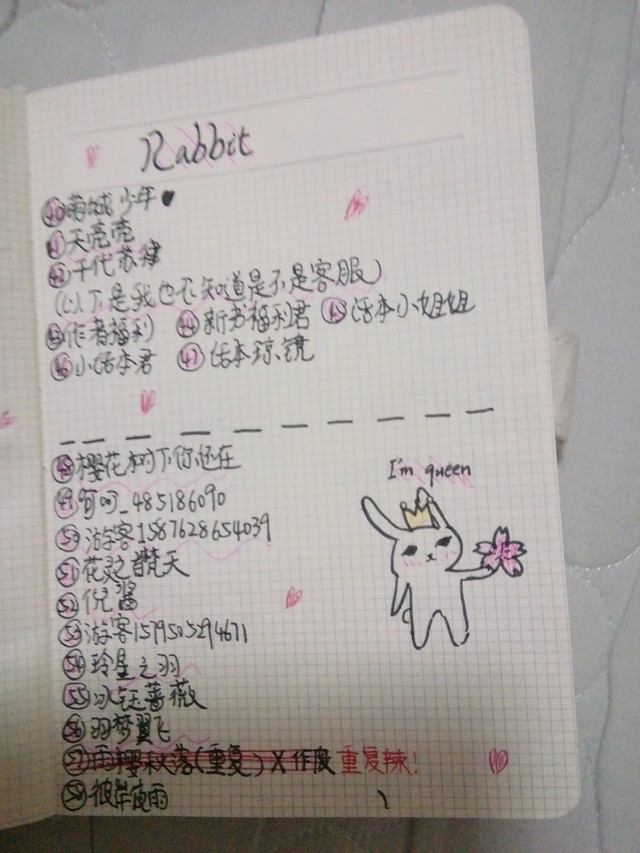 Rabbit
㊵萌城少年♥
㊶天壳壳
㊷千代苏肂
(以下是我也不知道是不是客服)
㊸作者福利 ㊹新书福利君 ㊺话本小姐姐
㊻小话本君 ㊼话本琼镜
㊽樱花树下你还在
I'm queen
㊾ 呵_485186090
㊿游客1587628654039
51花灵 梵天
52倪酱
53游客1579505294671
54玲星之羽
55冰钰蔷薇
56羽梦翼飞
57雨樱秋落(重复)X作废 重复辣!
58彼岸夜雨